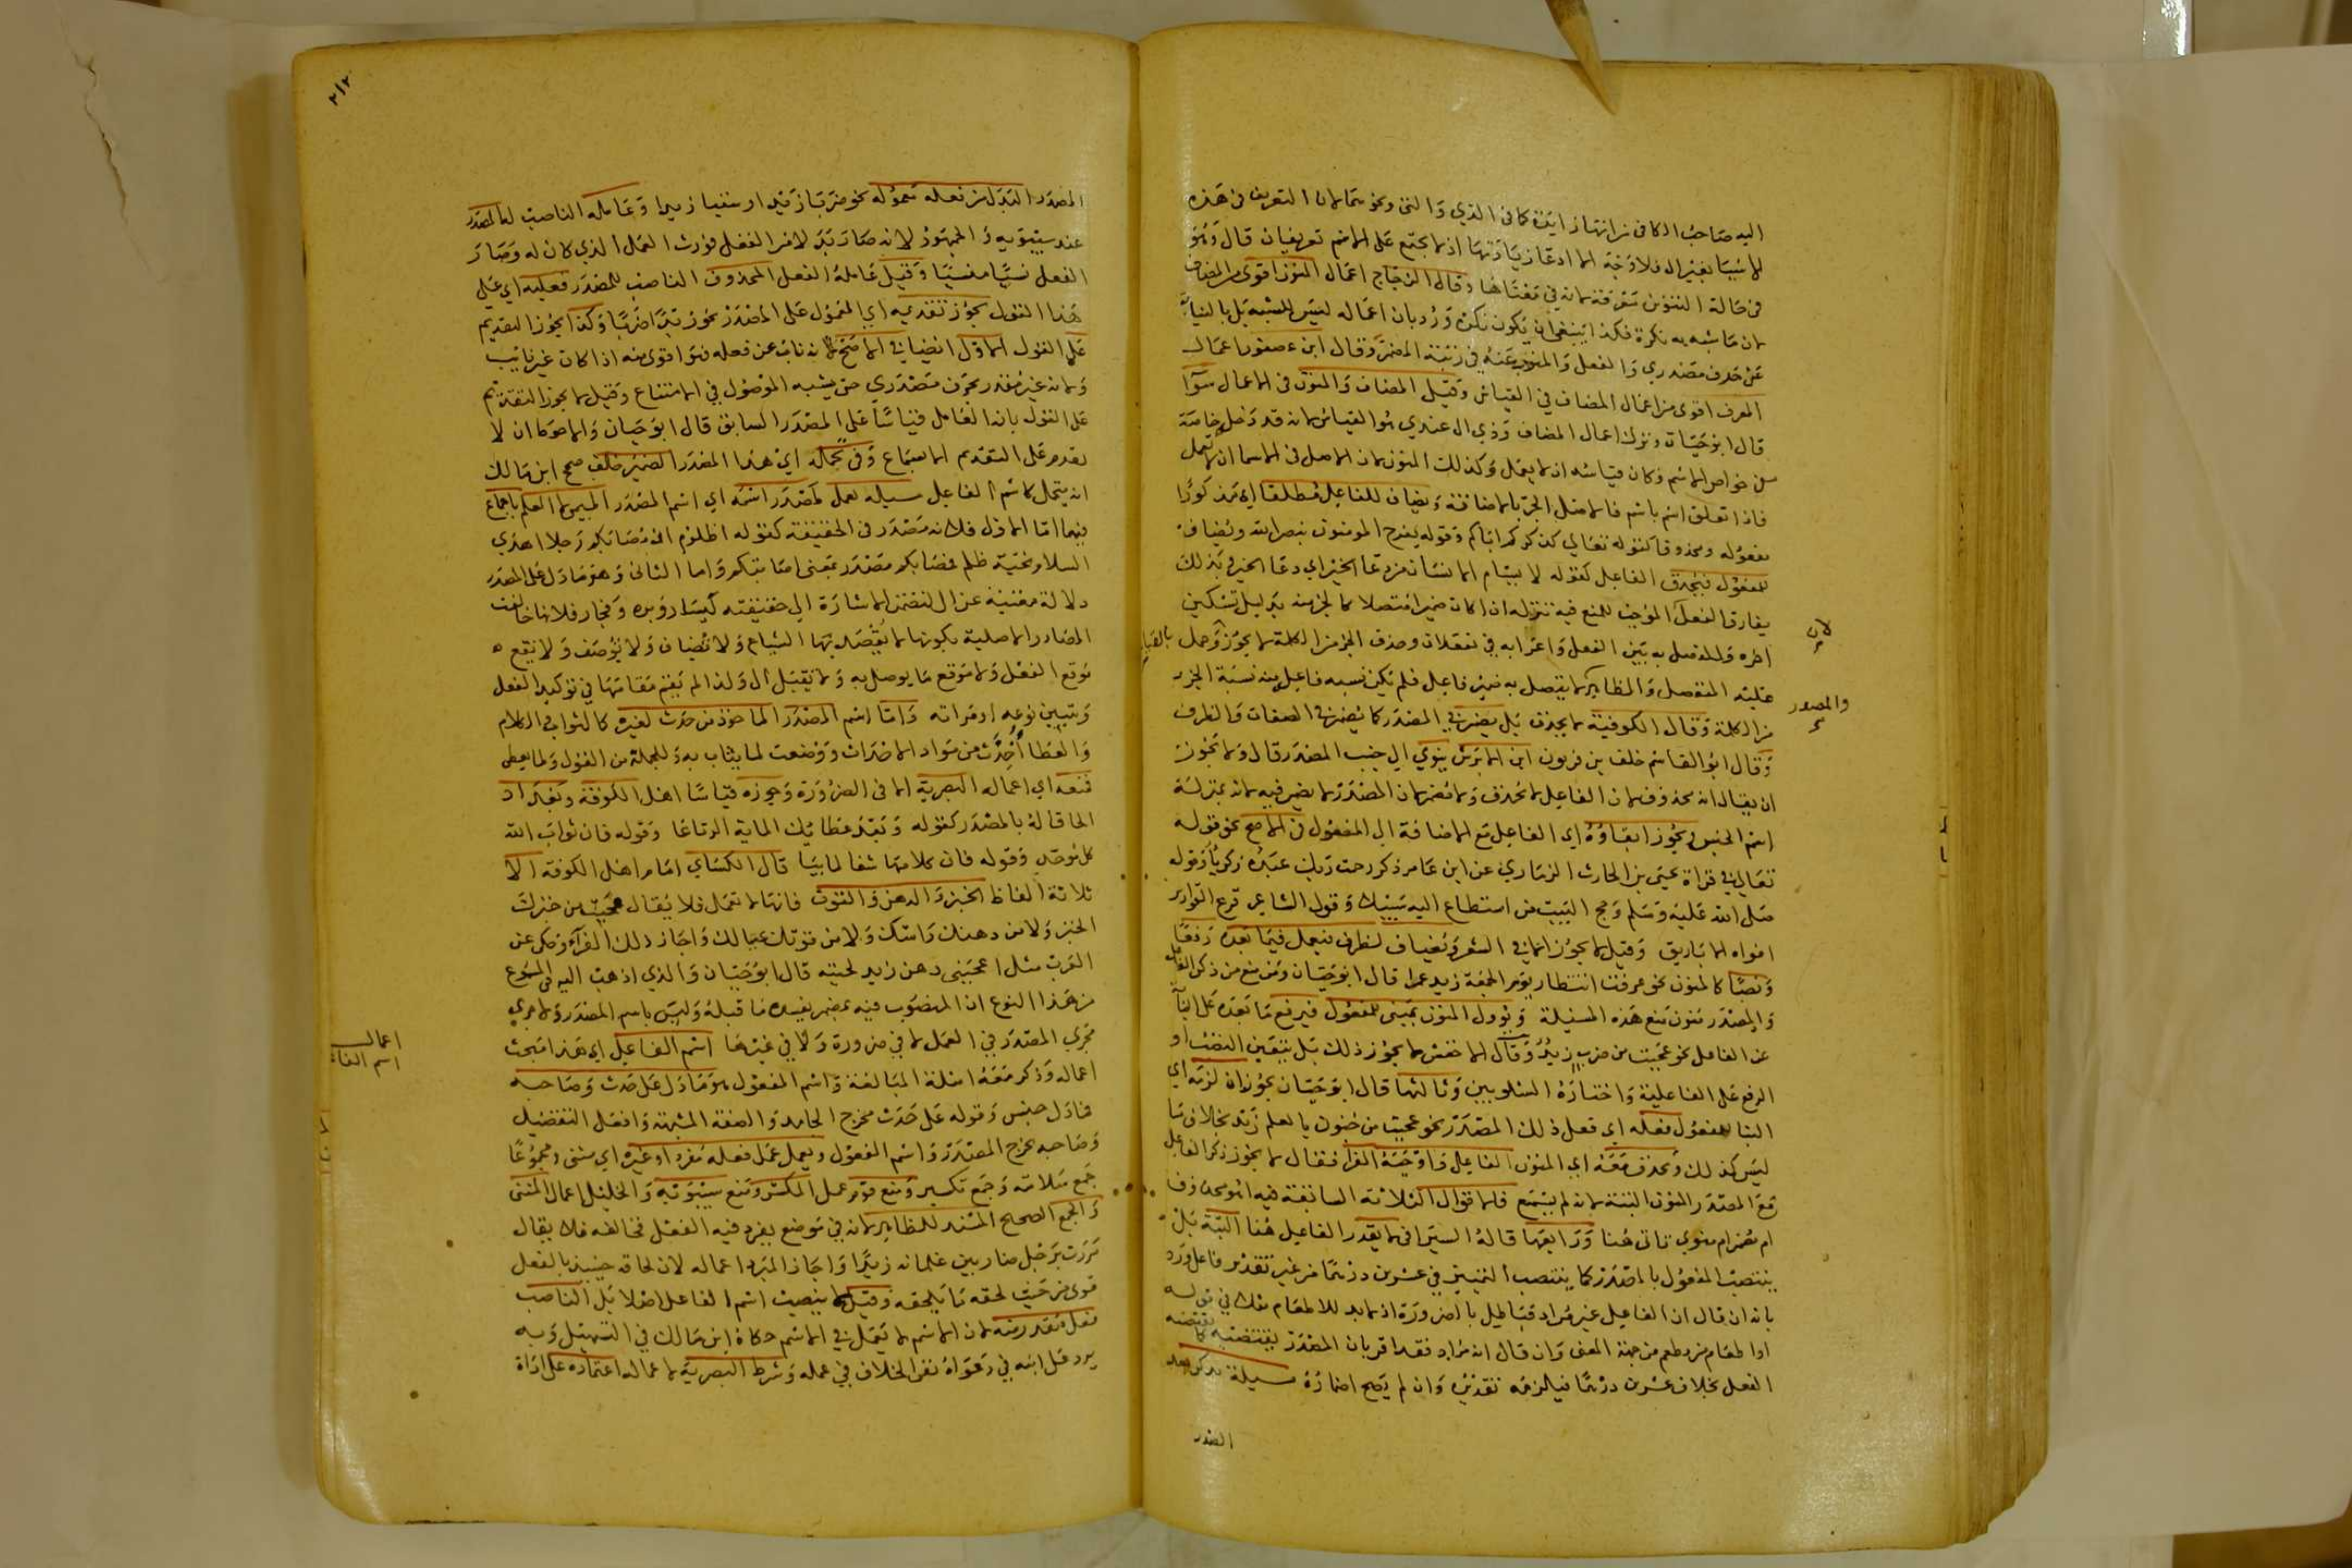 اليه صاحب الكافى من انها زايدة كما فى الذي والتى ونحوهما لان التعريف فى هذه
لا شيبا بغير ال فلا وجه الا ادعا زيادتها اذ لا يجتمع على الاسم تعريفان قال وهو
فى حالة التنوين معرفة لانه في معناها وقال الزجاج اعمال المنون اقوى من المضاف
لان ما شبه به نكرة فكذا ينبغي ان يكون نكرة ورد بان اعماله ليس للشبه بل بالنيابة
عن حرف مصدري والفعل والمنوب عنه في رتبة المضمر وقال ابن عصفور اعمال
المعرف اقوى من اعمال المضاف في القياس وقيل المضاف والمنون فى الاعمال سوآ
قال ابو حيان وترك اعمال المضاف وذي ال عندي هو القياس لانه قد دخله خاصة
من خواص الاسم فكان قياسه ان لا يعمل وكذلك المنون لان الاصل فى الاسما ان لا تعمل
فاذا تعلق اسم باسم فالاصل الجر بالاضافة ويضاف للفاعل مطلقا اي مذكورا
مفعوله ومحذوفا كقوله تعالي كذكركم اباكم وقوله يفرح المومنون بنصر الله ويضاف
للمفعول فيحذف الفاعل كقوله لا يسام الانسان من دعا الخير اي دعا الخير وبذلك
يفارق الفعل الموجب للمنع فيه تنزله اذا كان ضميرا متصلا كالجزء منه بدليل تسكين
لان
اخره والفصل به بين الفعل واعرابه في تفعلان وحذف الجزء من الكلمة لا يجوز وحمل
عليه المنفصل والظاهر لا يتصل به ضمير فاعل فلم تكن نسبة فاعله منه نسبة الجزء
والمصدر
من الكلمة وقال الكوفية لا يحذف بل يضمر في المصدر كما يضمر في الصفات والظرف
وقال ابو القاسم خلف بن فرتون ابن الابرش ينوي الى جنب المصدر قال ولا يجوز
ان يقال انه محذوف لان الفاعل لا يحذف ولا مضمر لان المصدر لا يضمر فيه لانه بمنزلة
اسم الجنس ويجوز ابقاوه اي الفاعل مع الاضافة الى المفعول فى الاصح نحو قوله
تعالي في قراة يحيى بن الحارث الذماري عن ابن عامر ذكر رحمت ربك عبده زكريآ وقوله
صلى الله عليه وسلم وحج البيت من استطاع اليه سبيلا وقول الشاعر قرع القواقيز
افواه الاباريق وقيل لا يجوز الا في الشعر ويضاف لظرف فيعمل فيما بعده رفعا
ونصبا كالمنون نحو عرفت انتظار يوم الجمعة زيد عمرا قال ابو حيان ومن منع من ذكر الفاعل
والمصدر منون منع هذه المسئلة ويوول المنون بمبنى للمفعول فيرفع ما بعده على النيآبة
عن الفاعل نحو عجبت من ضرب زيد وقال الاخفش لا يجوز ذلك بل يتعين النصب او
الرفع على الفاعلية واختاره الشلوبين وثالثها قال ابو حيان يجوز ان لزمه اي
البنا للمفعول فعله اي فعل ذلك المصدر نحو عجبت من جنون بالعلم زيد بخلاف ما
ليس كذلك ويحذف معه اي المنون الفاعل واوجبه الفرا فقال لا يجوز ذكر الفاعل
مع المصدر المنون البتة لانه لم يسمع فالاقوال الثلاثة السابقة فيه اهو محذوف
ام مضمر ام منوي تاتى هنا ورابعها قاله السيرافى لا يقدر الفاعل هنا البتة بل
ينتصب المفعول بالمصدر كما ينتصب التمييز في عشرين درهما من غير تقدير فاعل ورد
بانه ان قال ان الفاعل غير مراد فباطل بالضرورة اذ لا بد للاطعام مثلا في قوله
او اطعام من مطعم من جهة المعنى وان قال انه مراد فقد اقر بان المصدر يقتضيه كما يقتضيه
الفعل بخلاف عشرين درهما فيلزمه تقديره وان لم يصح اضماره مسيلة يذكر بعد
المصدر
٢١٢
المصدر البدل من فعله معموله نحو ضربا زيدا وسقيا زيدا وعامله الناصب له المصدر
عند سيبويه والجمهور لانه صار بدلا من الفعل فورث العمل الذي كان له وصار
الفعل نسيا منسيا وقيل عامله الفعل المحذوف الناصب للمصدر فعليه اي على
هذا القول يجوز تقديمه اي المعمول على المصدر نحو زيدا ضربا وكذا يجوز التقديم
على القول الاول ايضا في الاصح لانه ناب عن فعله فهو اقوى منه اذا كان غير نايب
ولانه غير مقدر بحرف مصدري حتى يشبه الموصول في الامتناع وقيل لا يجوز التقديم
على القول بانه العامل قياسا على المصدر السابق قال ابو حيان والاحوط ان لا
يقدم على التقديم الا بسماع وفى تحمله اي هذا المصدر الضمير خلف صحح ابن مالك
انه يتحمل كاسم الفاعل مسيلة يعمل لمصدر اسمه اي اسم المصدر الميمي لا العلم باجماع
فيهما اما الاول فلانه مصدر فى الحقيقة كقوله اظلوم ان مصابكم رجلا اهدي
السلام تحية ظلم فمصابكم مصدر بمعنى اصابتكم واما الثانى وهو ما دل على المصدر
دلالة مغنية عن ال لتضمن الاشارة الي حقيقته كيسار وبره وفجار فلانها خالفت
المصادر الاصلية بكونها لا يقصد بها الشياع ولا تضاف ولا توصف ولا تقع
موقع الفعل ولا موقع ما يوصل به ولا تقبل ال ولذا لم يقم مقامها في توكيد الفعل
وتبيين نوعه او مراته واما اسم المصدر الماخوذ من حدث لغيره كالثواب والكلام
والعطا اخذت من مواد الاحداث ووضعت لما يثاب به وللجملة من القول ولما يعطى
فمنعه اي اعماله البصرية الا فى الضرورة وجوزه قياسا اهل الكوفة وبغداد
الحاقا له بالمصدر كقوله وبعد عطايك الماية الرتاعا وقوله فان ثواب الله
كل موحد وقوله فان كلامها شفا لما بيا قال الكساي امام اهل الكوفة الا
ثلاثة الفاظ الخبز والدهن والقوت فانها لا تعمل فلا يقال عجبت من خبزك
الخبز ولا من دهنك راسك ولا من قوتك عيالك واجاز ذلك الفرآ وحكى عن
العرب مثل اعجبنى دهن زيد لحيته قال ابو حيان والذي اذهب اليه فى المسموع
من هذا النوع ان المنصوب فيه بمضمر يفسره ما قبله وليس باسم المصدر ولا يجري
مجري المصدر في العمل لا في ضرورة ولا في غيرها اسم الفاعل اي هذا مبحث
اعمال
اسم الفاعل
اعماله وذكر معه امثلة المبالغة واسم المفعول هو ما دل على حدث وصاحبه
فما دل جنس وقوله على حدث مخرج الجامد والصفة المشبهة وافعل التفضيل
وصاحبه مخرج المصدر واسم المفعول ويعمل عمل فعله مفردا وغيره اي مثنى ومجموعا
جمع سلامة وجمع تكسير ومنع قوم عمل المكسر ومنع سيبويه والخليل اعمال المثنى
والجمع الصحيح المسند للظاهر لانه في موضع يفرد فيه الفعل فخالفه فلا يقال
مررت برجل ضاربين غلمانه زيدا واجاز المبرد اعماله لان لحاقه حينئذ بالفعل
قوى من حيث لحقه ما يلحقه وقيل لا ينصب اسم الفاعل اصلا بل الناصب
فعل مقدر منه لان الاسم لا يعمل في الاسم حكاه ابن مالك في التسهيل وبه
يرد على ابنه في دعواه نفى الخلاف في عمله وشرط البصرية لاعماله اعتماده على اداة